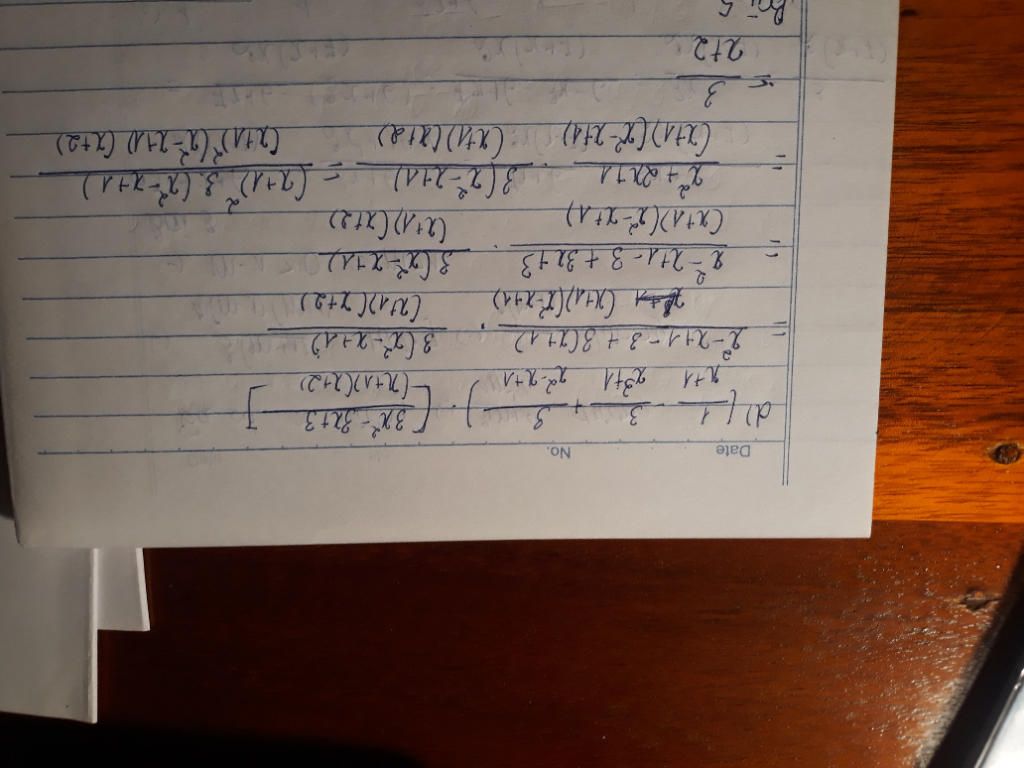 Date No.
d) ( 1/(x+1) - 3/(x³+1) + 3/(x²-x+1) ) · [ (3x²-3x+3)/((x+1)(x+2)) ]
= (x²-x+1-3+3(x+1))/((x+1)(x²-x+1)) · (3(x²-x+1))/((x+1)(x+2))
= (x²-x+1-3+3x+3)/((x+1)(x²-x+1)) · (3(x²-x+1))/((x+1)(x+2))
= (x²+2x+1)/((x+1)(x²-x+1)) · (3(x²-x+1))/((x+1)(x+2)) = ((x+1)².3.(x²-x+1))/((x+1)²(x²-x+1)(x+2))
= 3/(x+2)
Bài 5